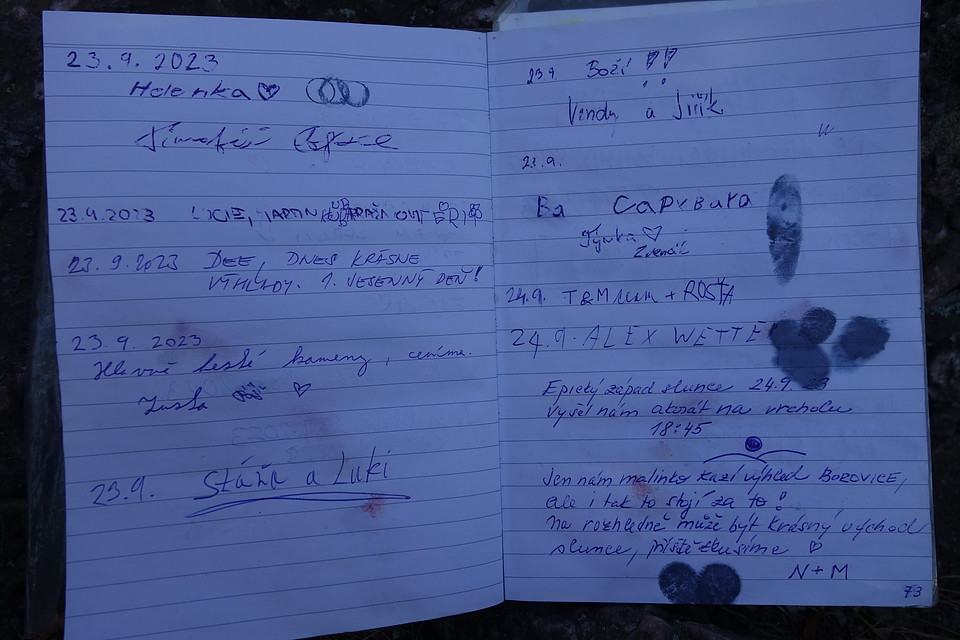 23.9.2023
Helenka
23.9.2023
23.9.2023 DEE, DNES KRÁSNE
VÝHĽADY. 1. JESENNÝ DEŇ!
23.9.2023
Hlavně hezké kameny, ceníme.
Zuska
23.9. Stáňa a Luki
23.9 Boží !!
Vindy a Jiřík
23.9.
Ea Capybara
Týnka
24.9. T&M + ROSŤA
24.9. ALEX WETTE
Epický západ slunce 24.9. 23
vyšel nám akorát na vrcholu
18:45
Jen nám malinko kazí výhled BOROVICE,
ale i tak to stojí za to!
Na rozhledně může být krásný východ
slunce, příště zkusíme
N+M
73